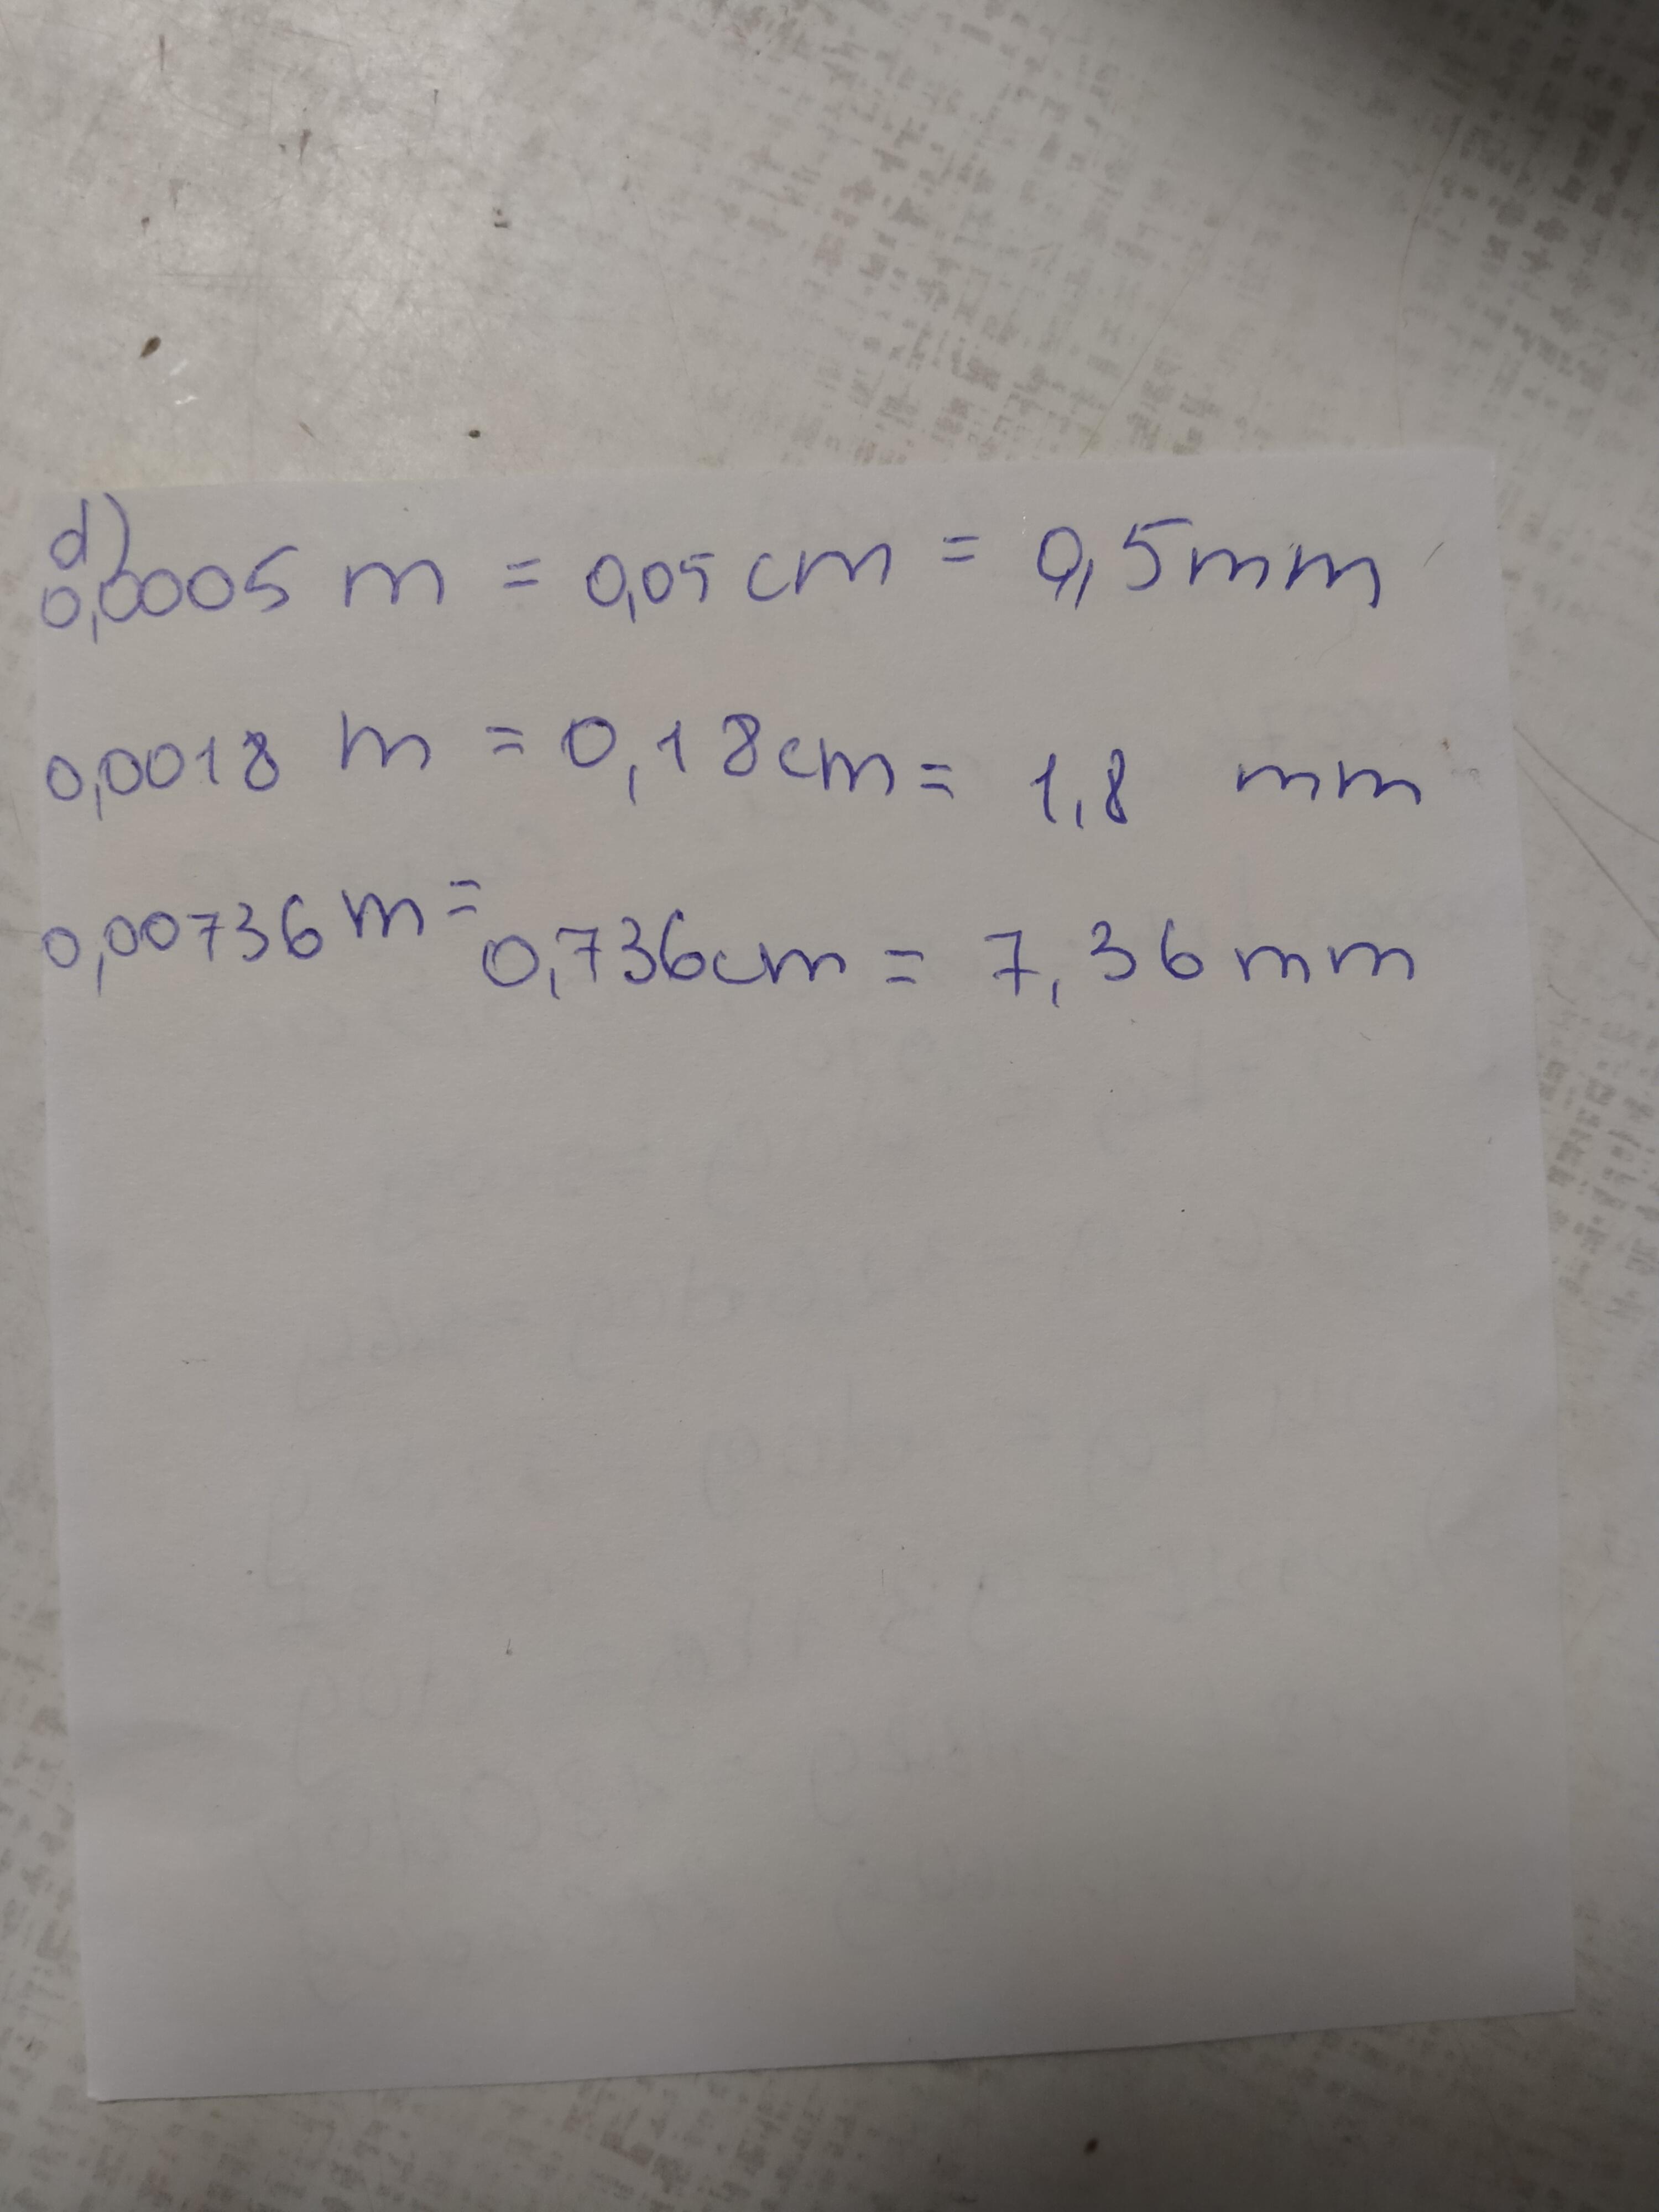 d)
0,0005 m = 0,05 cm = 0,5 mm
0,0018 m = 0,18 cm = 1,8 mm
0,00736 m = 0,736 cm = 7,36 mm